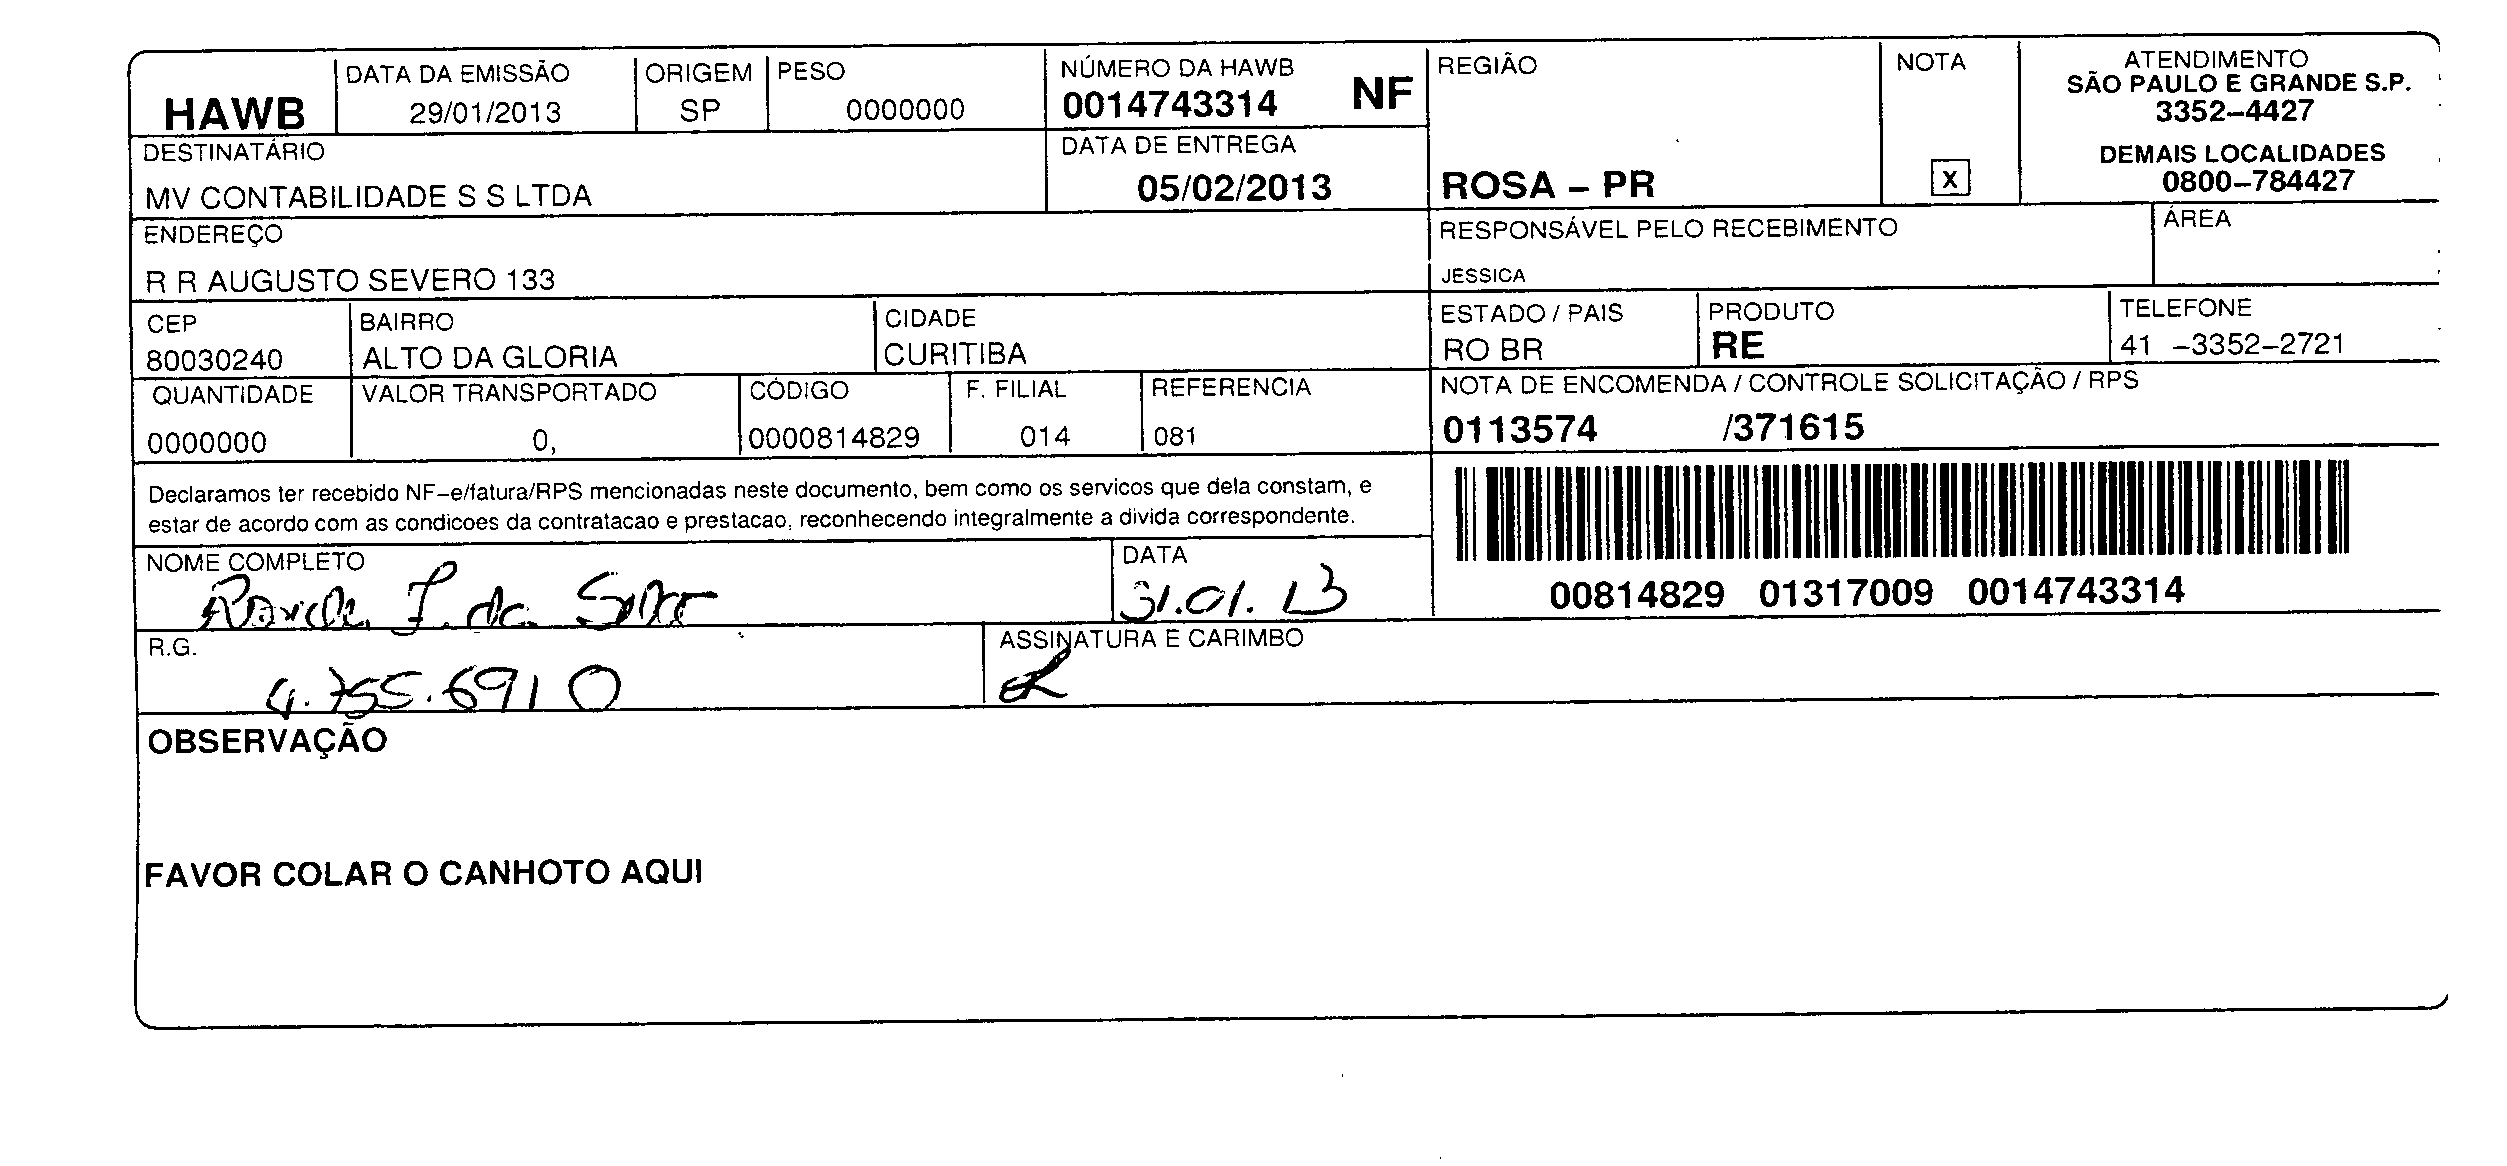 HAWB
DATA DA EMISSÃO
29/01/2013
ORIGEM
SP
PESO
0000000
NÚMERO DA HAWB
0014743314 NF
REGIÃO
ROSA – PR
NOTA
X
ATENDIMENTO
SÃO PAULO E GRANDE S.P.
3352–4427
DEMAIS LOCALIDADES
0800–784427
DESTINATÁRIO
MV CONTABILIDADE S S LTDA
DATA DE ENTREGA
05/02/2013
ENDEREÇO
R R AUGUSTO SEVERO 133
RESPONSÁVEL PELO RECEBIMENTO
JESSICA
ÁREA
CEP
80030240
BAIRRO
ALTO DA GLORIA
CIDADE
CURITIBA
ESTADO / PAIS
RO BR
PRODUTO
RE
TELEFONE
41 –3352–2721
QUANTIDADE
0000000
VALOR TRANSPORTADO
0,
CÓDIGO
0000814829
F. FILIAL
014
REFERENCIA
081
NOTA DE ENCOMENDA / CONTROLE SOLICITAÇÃO / RPS
0113574 /371615
Declaramos ter recebido NF–e/fatura/RPS mencionadas neste documento, bem como os servicos que dela constam, e
estar de acordo com as condicoes da contratacao e prestacao, reconhecendo integralmente a divida correspondente.
00814829 01317009 0014743314
NOME COMPLETO
DATA
31.01.13
R.G.
4.755.691 0
ASSINATURA E CARIMBO
OBSERVAÇÃO
FAVOR COLAR O CANHOTO AQUI